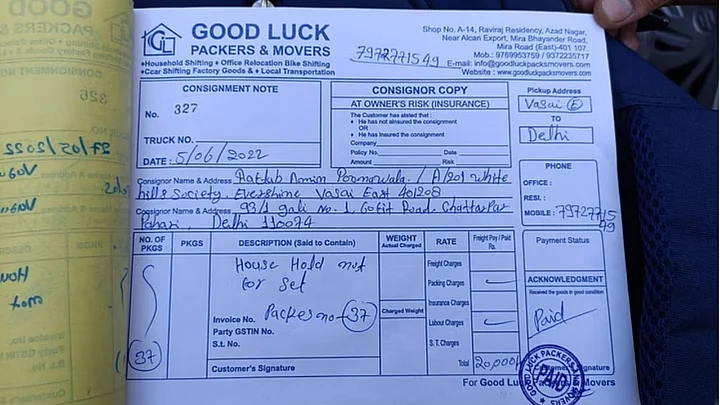 GOOD LUCK
PACKERS & MOVERS
•Household Shifting ♦ Office Relocation Bike Shifting
♦Ccar Shifting Factory Goods & ♦ Local Transportation
Shop No. A-14, Raviraj Residency, Azad Nagar,
Near Alcan Export, Mira Bhayander Road,
Mira Road (East)-401 107.
Mob.: 9769953759 / 9372235717
7972771549 E-mail: info@goodluckpackmovers.com
Website : www.goodluckpacksmovers.com
CONSIGNMENT NOTE
No. 327
TRUCK NO.
DATE : 5/06/2022
CONSIGNOR COPY
AT OWNER'S RISK (INSURANCE)
The Customer has atsted that :
• He has not aInsured the consignment
OR
• He has Insured the consignment
Company
Policy No. Date
Amount Risk
Pickup Address
Vasai (E)
TO
Delhi
Consignor Name & Address Amin / A/201 White
hills Society. Evershine Vasai East 401208
Consignor Name & Address 93/1 gali No. 1, Road, Chattarpar
Pahari, Delhi 110074
PHONE
OFFICE :
RESI. :
MOBILE : 7972771549
NO. OF PKGS
PKGS
DESCRIPTION (Said to Contain)
WEIGHT
Actual Charged
RATE
Freight Pay / Paid
Rs.
House Hold not
for Set
Invoice No. Packes no - 37
Party GSTIN No.
S.t. No.
37
Customer's Signature
Charged Weight
Freight Charges
Packing Charges
Insurance Charges
Labour Charges
S. T. Charges
Total 20,000/-
Payment Status
ACKNOWLEDGMENT
Received the goods in good condition
Paid
Customer Signature
For Good Luck Packers & Movers
GOOD LUCK PACKERS AND MOVERS
PAID
GOOD
CONSIGNMENT NO
326
27/05/2022